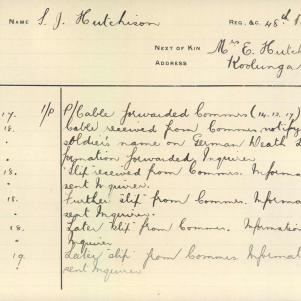 NAME S. J. Hutchison REG. &C. 48th
NEXT OF KIN Mrs E. Hutch
ADDRESS Koolunga
17. 1/P P/Cable forwarded Commrs (14.12.17)
18. Cable received from Commrs. notify
" soldier's name on German Death L
" formation forwarded, Inquirer
18. "Slip" received from Commrs. Informa
" sent Inquirer.
18. Further "slip" from Commrs. Informa
" sent Inquirer.
18. Later "slip" from Commrs. Information
" Inquirer
19. Later "slip" from Commrs Informati
sent Inquirer